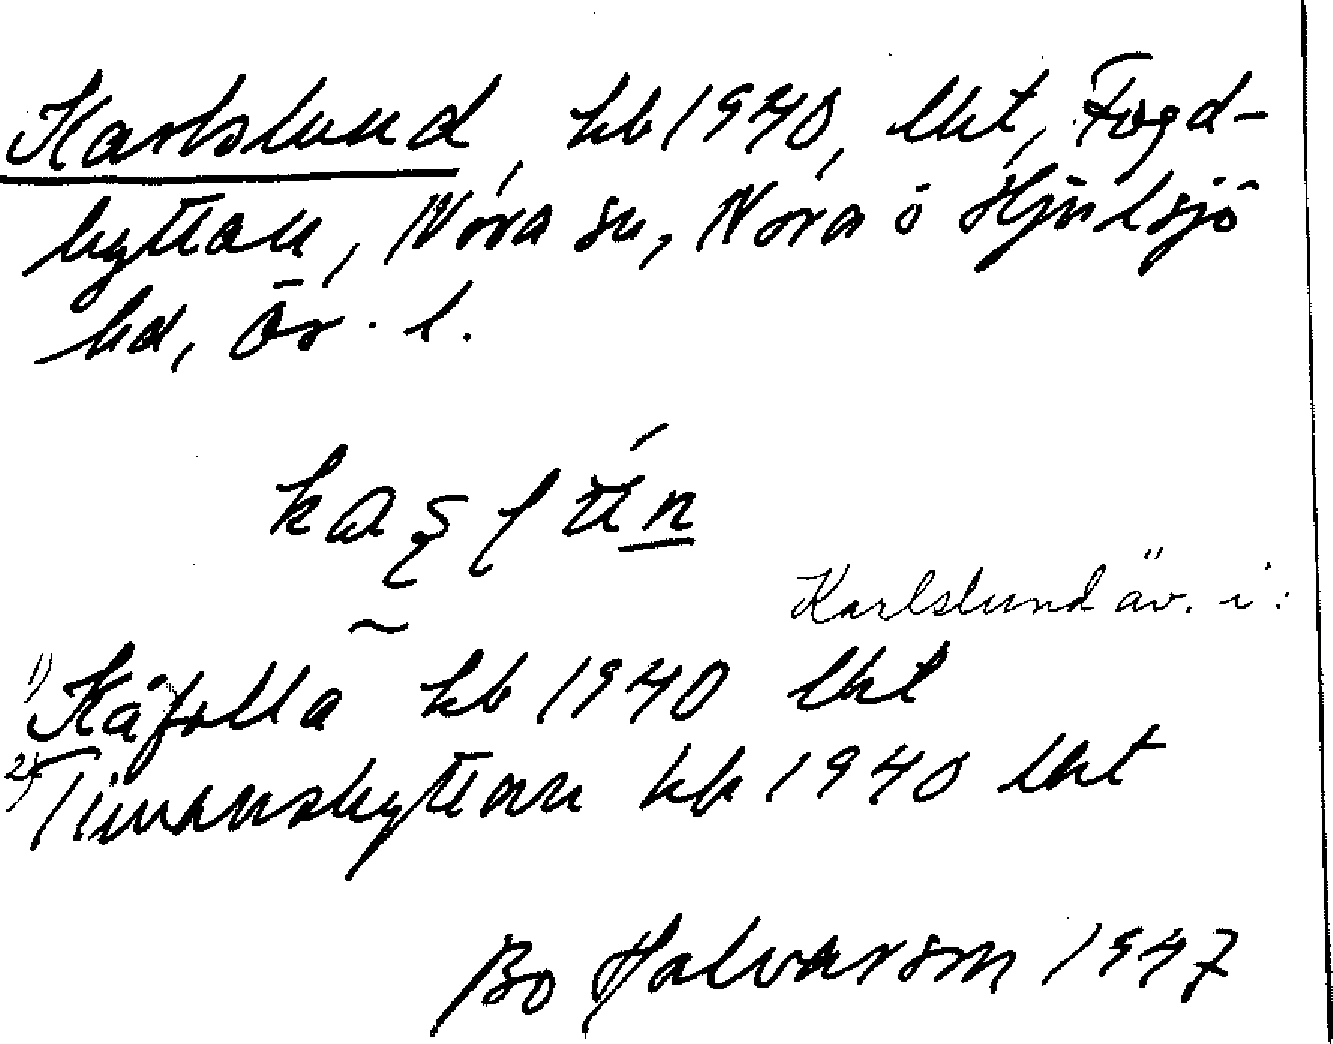 Karlslund, kb 1940, lht, Fogd-
hyttan, Nora sn, Nora o Hjulsjö
hd, Ör. l.
Karlslund äv. i:
1) Kåfalla kb 1940 lht
2) Timanshyttan kb 1940 lht
Bo Halvarson 1947